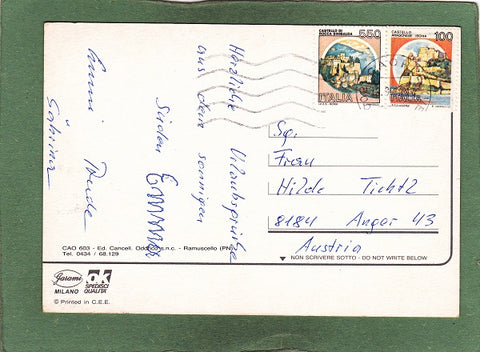 CASTELLO DI
ROCCA SINIBALDA
550
ITALIA
CASTELLO
ARAGONESE - ISCHIA
100
ITALIA
Herzliche Urlaubsgrüße
aus dem sonnigen
Süden
Sg.
Frau
Hilde Tichtl
8184 Anger 43
Austria
CAO 603 - Ed. Cancell. s.n.c. - Ramuscello (PN)
Tel. 0434 / 68.129
▼ NON SCRIVERE SOTTO - DO NOT WRITE BELOW
Garami
MILANO
OK
SPEDISCI
QUALITA'
© Printed in C.E.E.